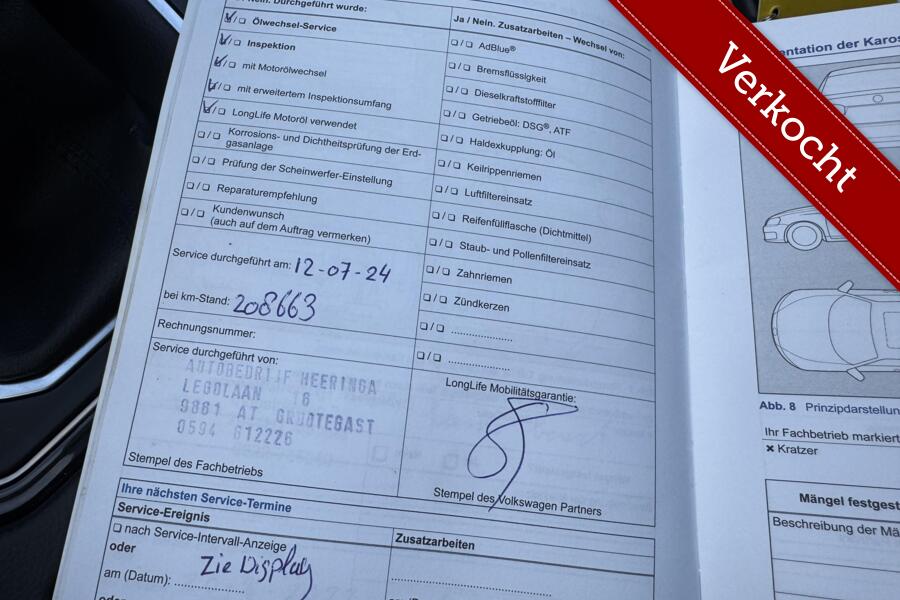 Nein. Durchgeführt wurde:
Ölwechsel-Service
Inspektion
mit Motorölwechsel
mit erweitertem Inspektionsumfang
LongLife Motoröl verwendet
Korrosions- und Dichtheitsprüfung der Erd-
gasanlage
Prüfung der Scheinwerfer-Einstellung
Reparaturempfehlung
Kundenwunsch
(auch auf dem Auftrag vermerken)
Service durchgeführt am: 12-07-24
bei km-Stand: 208663
Rechnungsnummer:
Service durchgeführt von:
AUTOBEDRIJF HEERINGA
LEGOLAAN 16
9861 AT GROOTEGAST
0594 612226
Stempel des Fachbetriebs
Ja / Nein. Zusatzarbeiten – Wechsel von:
AdBlue®
Bremsflüssigkeit
Dieselkraftstofffilter
Getriebeöl: DSG®, ATF
Haldexkupplung: Öl
Keilrippenriemen
Luftfiltereinsatz
Reifenfüllflasche (Dichtmittel)
Staub- und Pollenfiltereinsatz
Zahnriemen
Zündkerzen
LongLife Mobilitätsgarantie:
Stempel des Volkswagen Partners
Ihre nächsten Service-Termine
Service-Ereignis
nach Service-Intervall-Anzeige
oder
Zie Display
am (Datum):
oder
Zusatzarbeiten
Verkocht
entation der Karos
Abb. 8 Prinzipdarstellun
Ihr Fachbetrieb markiert
× Kratzer
Mängel festgest
Beschreibung der Mä